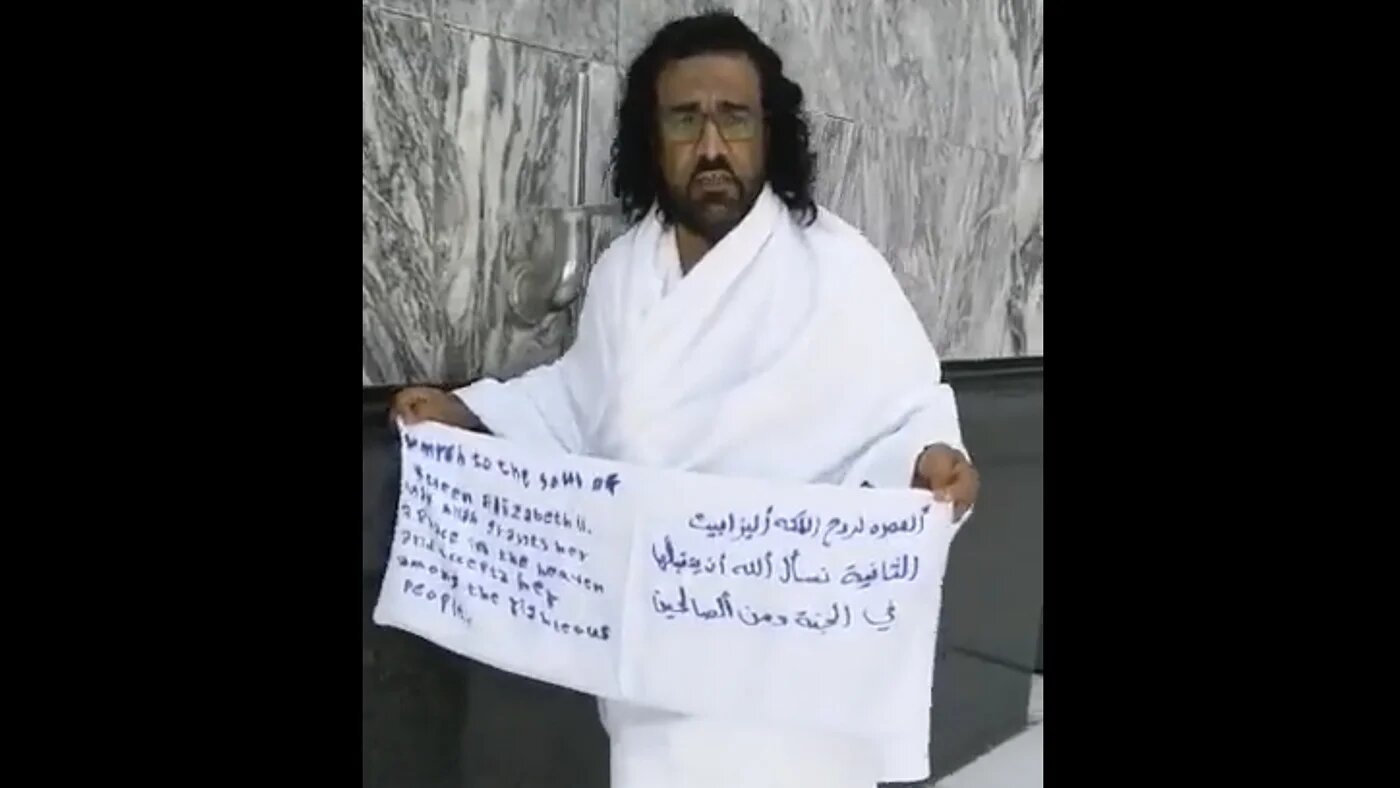 to the soul of
Queen Elizabeth II.
Allah grants her
a place in the heaven
and accepts her
among the righteous
people.
ألعمره لروح الملكه أليزابيث
الثانية نسأل ألله أن يتقبلها
في الجنة ومن ألصالحين